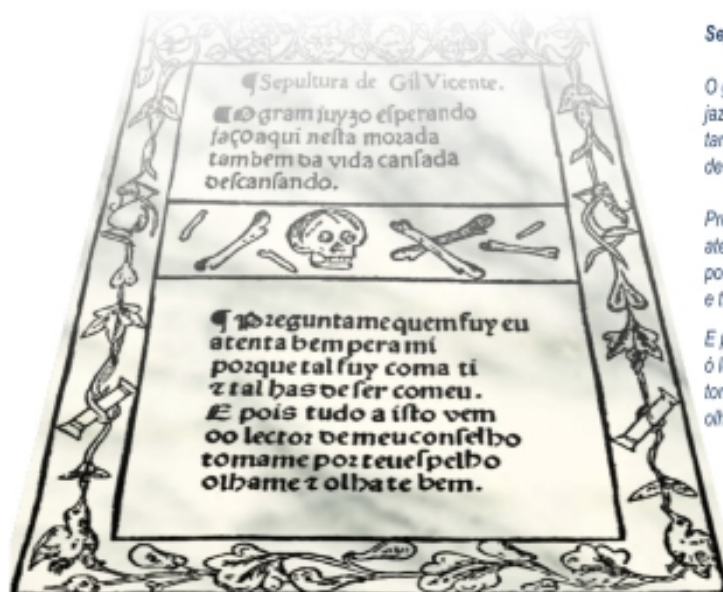 ¶ Sepultura de Gil Vicente.
¶ O gram juyzo esperando
jaço aqui nesta morada
tambem da vida cansada
descansando.
¶ Preguntame quem fuy eu
atenta bem pera mi
porque tal fuy coma ti
⁊ tal has de ser comeu.
E pois tudo a isto vem
oo lector de meu conselho
tomame por teu espelho
olhame ⁊ olhate bem.